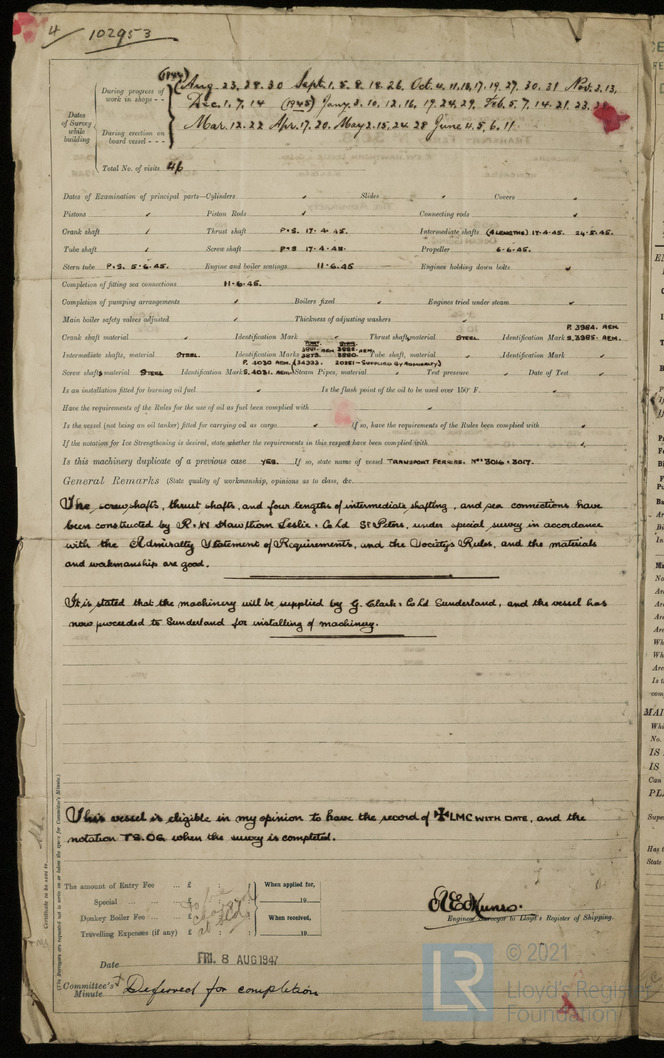 4 102953
(1944)
During progress of work in shops - - Aug. 23. 28. 30 Sept. 1. 5. 8. 18. 26. Oct. 4. 11. 18. 17. 19. 27. 30. 31 Nov. 3. 13.
Dec. 1. 7. 14 (1945) Jany. 3. 10. 12. 16. 19. 24. 29. Feb. 5. 7. 14. 21. 23.
Dates of Survey while building
During erection on board vessel - - - Mar. 12. 22 Apr. 17. 20. May 2. 15. 24. 28 June 4. 5. 6. 11.
Total No. of visits 46
Dates of Examination of principal parts—Cylinders Slides Covers
Pistons Piston Rods Connecting rods
Crank shaft Thrust shaft P.S. 17-4-45. Intermediate shafts (4 LENGTHS) 17-4-45. 24-5-45.
Tube shaft Screw shaft P&S 17-4-45. Propeller 6-6-45.
Stern tube P.S. 5-6-45. Engine and boiler seatings 11-6-45 Engines holding down bolts
Completion of fitting sea connections 11-6-45.
Completion of pumping arrangements Boilers fixed Engines tried under steam
Main boiler safety valves adjusted Thickness of adjusting washers
P. 3984. AEM.
Crank shaft material Identification Mark Thrust shaft material STEEL. Identification Mark S. 3985. AEM.
Intermediate shafts, material STEEL. Identification Marks Tube shaft, material Identification Mark
P. 4030 AEM.
Screw shaft, material STEEL Identification Mark S. 4031. AEM Steam Pipes, material Test pressure Date of Test
Is an installation fitted for burning oil fuel Is the flash point of the oil to be used over 150° F.
Have the requirements of the Rules for the use of oil as fuel been complied with
Is the vessel (not being an oil tanker) fitted for carrying oil as cargo If so, have the requirements of the Rules been complied with
If the notation for Ice Strengthening is desired, state whether the requirements in this respect have been complied with
Is this machinery duplicate of a previous case YES. If so, state name of vessel TRANSPORT FERRIES. Nos 3016 & 3017.
General Remarks (State quality of workmanship, opinions as to class, &c.
The screwshafts, thrust shafts, and four lengths of intermediate shafting, and sea connections have
been constructed by R. W Hawthorn Leslie & Co Ld St Peters, under special survey in accordance
with the Admiralty Statement of Requirements, and the Society's Rules, and the materials
and workmanship are good.
It is stated that the machinery will be supplied by G. Clark & Co Ld Sunderland, and the vessel has
now proceeded to Sunderland for installing of machinery.
This vessel is eligible in my opinion to have the record of ✠LMC WITH DATE, and the
notation TS. OG when the survey is completed.
The amount of Entry Fee ... £ When applied for,
Special ... ... £ 19
Donkey Boiler Fee ... £ When received,
Travelling Expenses (if any) £ 19
A E Munro.
Engineer Surveyor to Lloyd's Register of Shipping.
Date FRI. 8 AUG 1947
Committee's Minute Deferred for completion
© 2021
LR Lloyd's Register
Foundation